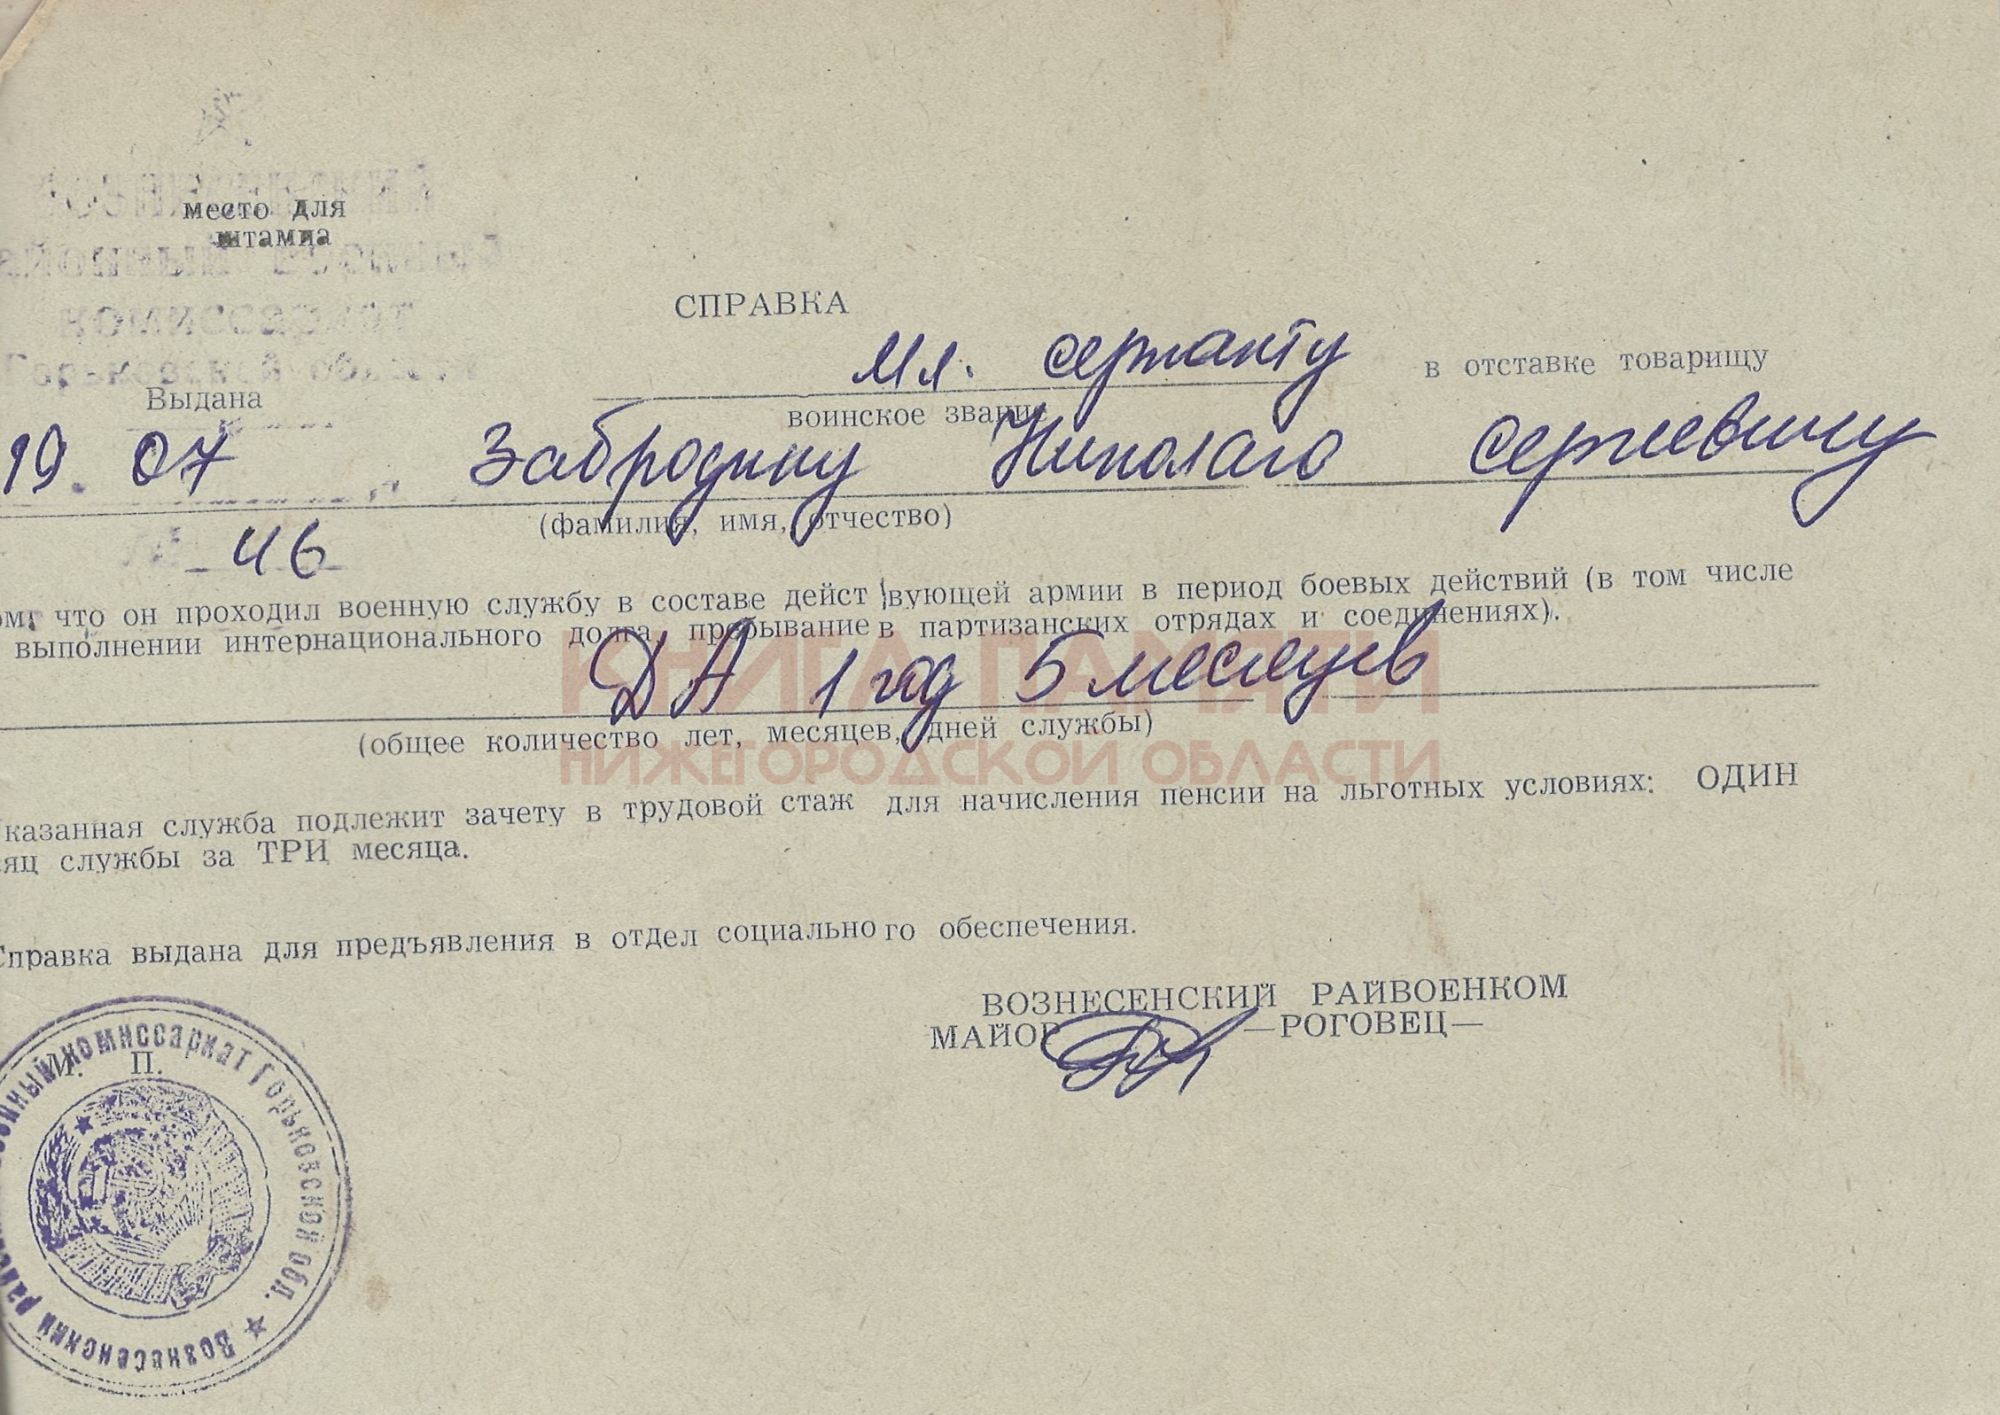 место для
штампа
комиссариат
СПРАВКА
Мл. сержанту в отставке товарищу
Выдана воинское звание
19 07 Забродину Николаю Сергеевичу
(фамилия, имя, отчество)
№ 46
что он проходил военную службу в составе дейст вующей армии в период боевых действий (в том числе
выполнении интернационального долга, пребывание в партизанских отрядах и соединениях).
ДА 1 год 5 месяцев
(общее количество лет, месяцев, дней службы)
КНИГА ПАМЯТИ
НИЖЕГОРОДСКОЙ ОБЛАСТИ
Указанная служба подлежит зачету в трудовой стаж для начисления пенсии на льготных условиях: ОДИН
яц службы за ТРИ месяца.
Справка выдана для предъявления в отдел социально го обеспечения.
ВОЗНЕСЕНСКИЙ РАЙВОЕНКОМ
МАЙОР —РОГОВЕЦ—
М. П.
Вознесенский комиссариат Горьковской обл.